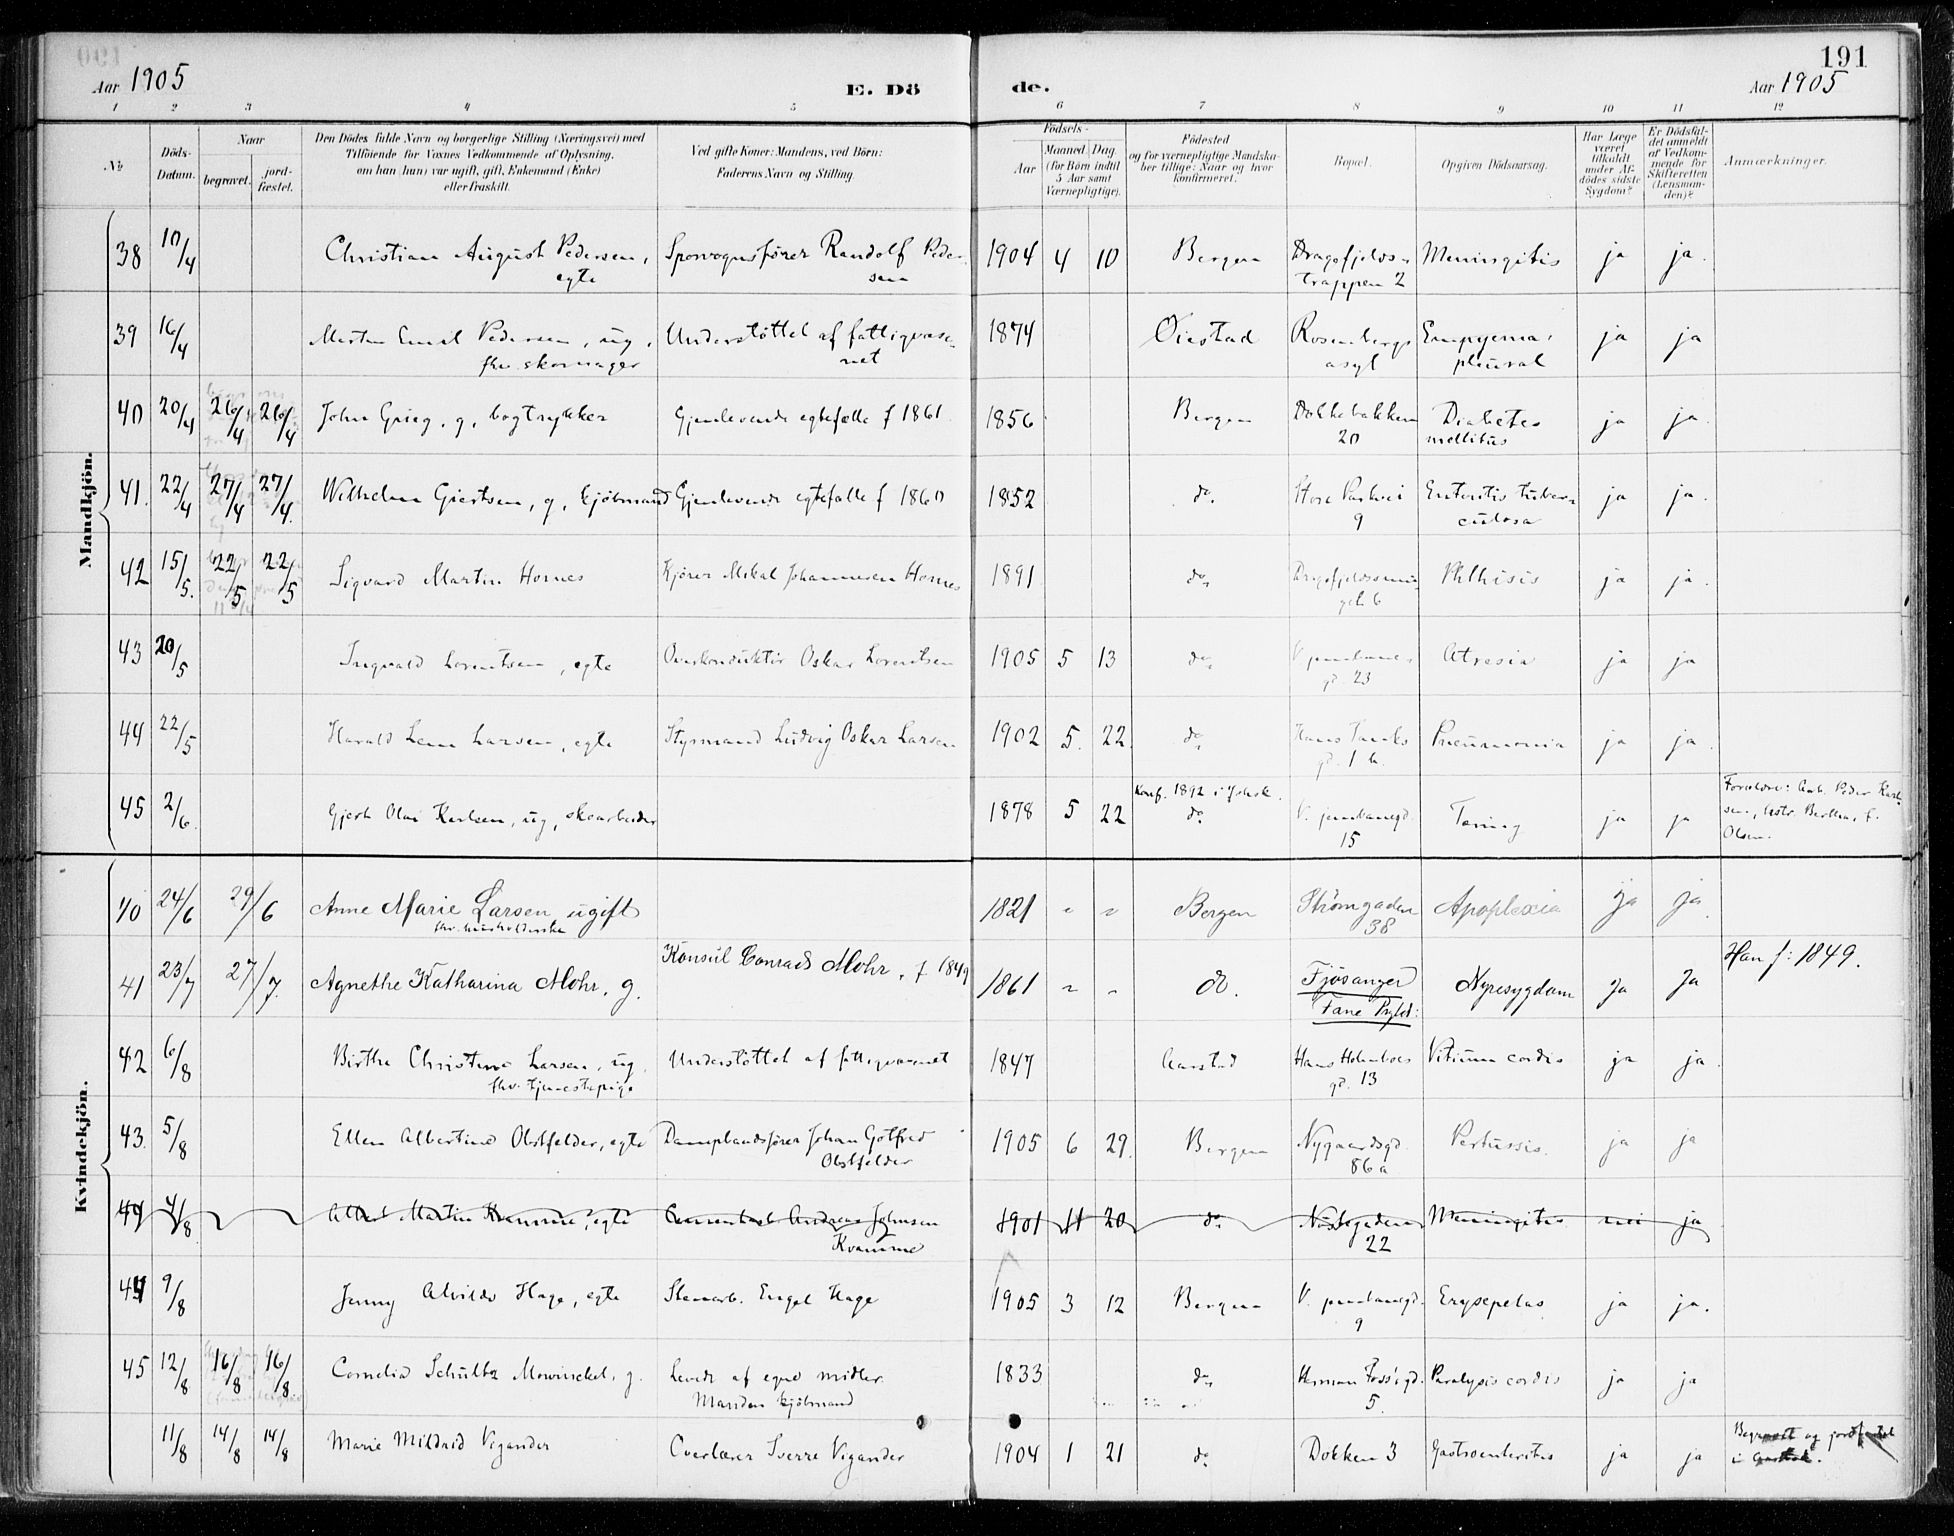 191
Aar 1905 E. Dö de. Aar 1905
1 2 3 4 5 6 7 8 9 10 11 12
№ Döds-Datum. Naar begravet. jord-fæstet. Den Dödes fulde Navn og borgerlige Stilling (Næringsvei) med Tilföiende for Voxnes Vedkommende af Oplysning, om han (hun) var ugift, gift, Enkemand (Enke) eller fraskilt. Ved gifte Koner: Mandens, ved Börn: Faderens Navn og Stilling Födsels- Aar Maaned. Dag. (for Börn indtil 5 Aar samt Værnepligtige). Födested og for værnepligtige Mandskaber tillige: Naar og hvor konfirmeret. Bopæl. Opgiven Dödsaarsag. Har Læge været tilkaldt under Afdödes sidste Sygdom? Er Dödsfaldet anmeldt af Vedkommende for Skifteretten (Lensmanden)? Anmærkninger.
Mandkjön.
38 10/4 Christian August Pedersen, egte Sporvognsfører Randolf Pedersen 1904 4 10 Bergen Dragefjelds-trappen 2 Meningitis ja ja.
39 16/4 Martin Emil Pedersen, ug, fhv. skomager Understøttet af fattigvæsenet 1874 Oiestad Rosenbergs asyl Empyema pleural ja ja
40 20/4 26/4 26/4 John Grieg, g, bogtrykker Gjenlevende egtefælle f 1861 1856 Bergen Dokkebakken 20 Diabetes mellitus ja ja.
41. 22/4 27/4 27/4. Wilhelm Giertsen, g, kjöbmand Gjenlevende egtefælle f 1860 1852 do. Store Parkvei 9 Enteritis tuberculosa ja ja.
42 15/5. 22/5 22/5 Sigvard Martin Hornes Kjører Mikal Johannesen Hornes 1891 do. 6 Phthisis ja ja.
43 20/5 Ingvald Lorentsen, egte Overkonduktör Oskar Lorentsen 1905 5 13 do. V. jernbane-gd. 23 Atresia ja ja
44 22/5 Harald Lem Larsen, egte Styrmand Ludvig Oskar Larsen 1902 5. 22. do. Hans Tanks gd. 1 Pneumonia ja ja.
45 2/6. Gjert Olai Karlsen, ug, skoarbeider 1878 5 22 Konf. 1892 i Johsk. do. V. jernbanegd. 15 Tæring ja ja Forældre: Arb. Peder Karlsen, Bertha, f. Olsen.
Kvindekjön.
40 24/6 29/6 Anne Marie Larsen, ugift fhv. husholderske 1821 " " Bergen Strömgaden 38 Apoplexia ja ja.
41 23/7 27/7. Agnethe Katharina Mohr, g. Konsul Conrad Mohr, f 1849 1861 " " do. Fjösanger Fane Prgld: Nyresygdom ja ja Han f: 1849.
42 6/8 Birthe Christine Larsen, ug, fhv. tjenestepige Understøttet af fattigvæsenet 1847 Aarstad Hans Holmboes gd. 13 Vitium cordis ja ja.
43. 5/8 Ellen Albertine Obstfelder, egte Dampbaadsfører Johan Gotfred Obstfelder 1905 6 29. Bergen Nygaardsgd. 86a Pertussis. ja ja
44 4/8 Albert Martin Kvamme, egte Andreas Johnsen Kvamme 1901 11 20 do. Nöstegaden 22 Meningitis nei ja
44 9/8 Jenny Alvilde Hage, egte Stenarb. Engel Hage 1905 3 12 Bergen V. jernbanegd. 9 Erysepelas ja ja.
45 12/8 16/8 16/8 Cornelia Schultz Mowinckel, g. Levede af egne midler. Manden kjöbmand 1833 do. Herman Foss'gd. 5. Paralysis cordis ja ja
11/8 14/8 14/8 Marie Mildrid Vigander Overlærer Sverre Vigander 1904 1 21 do. Dokken 3 Gastroenteritis ja ja Begravet og jordfæstet i